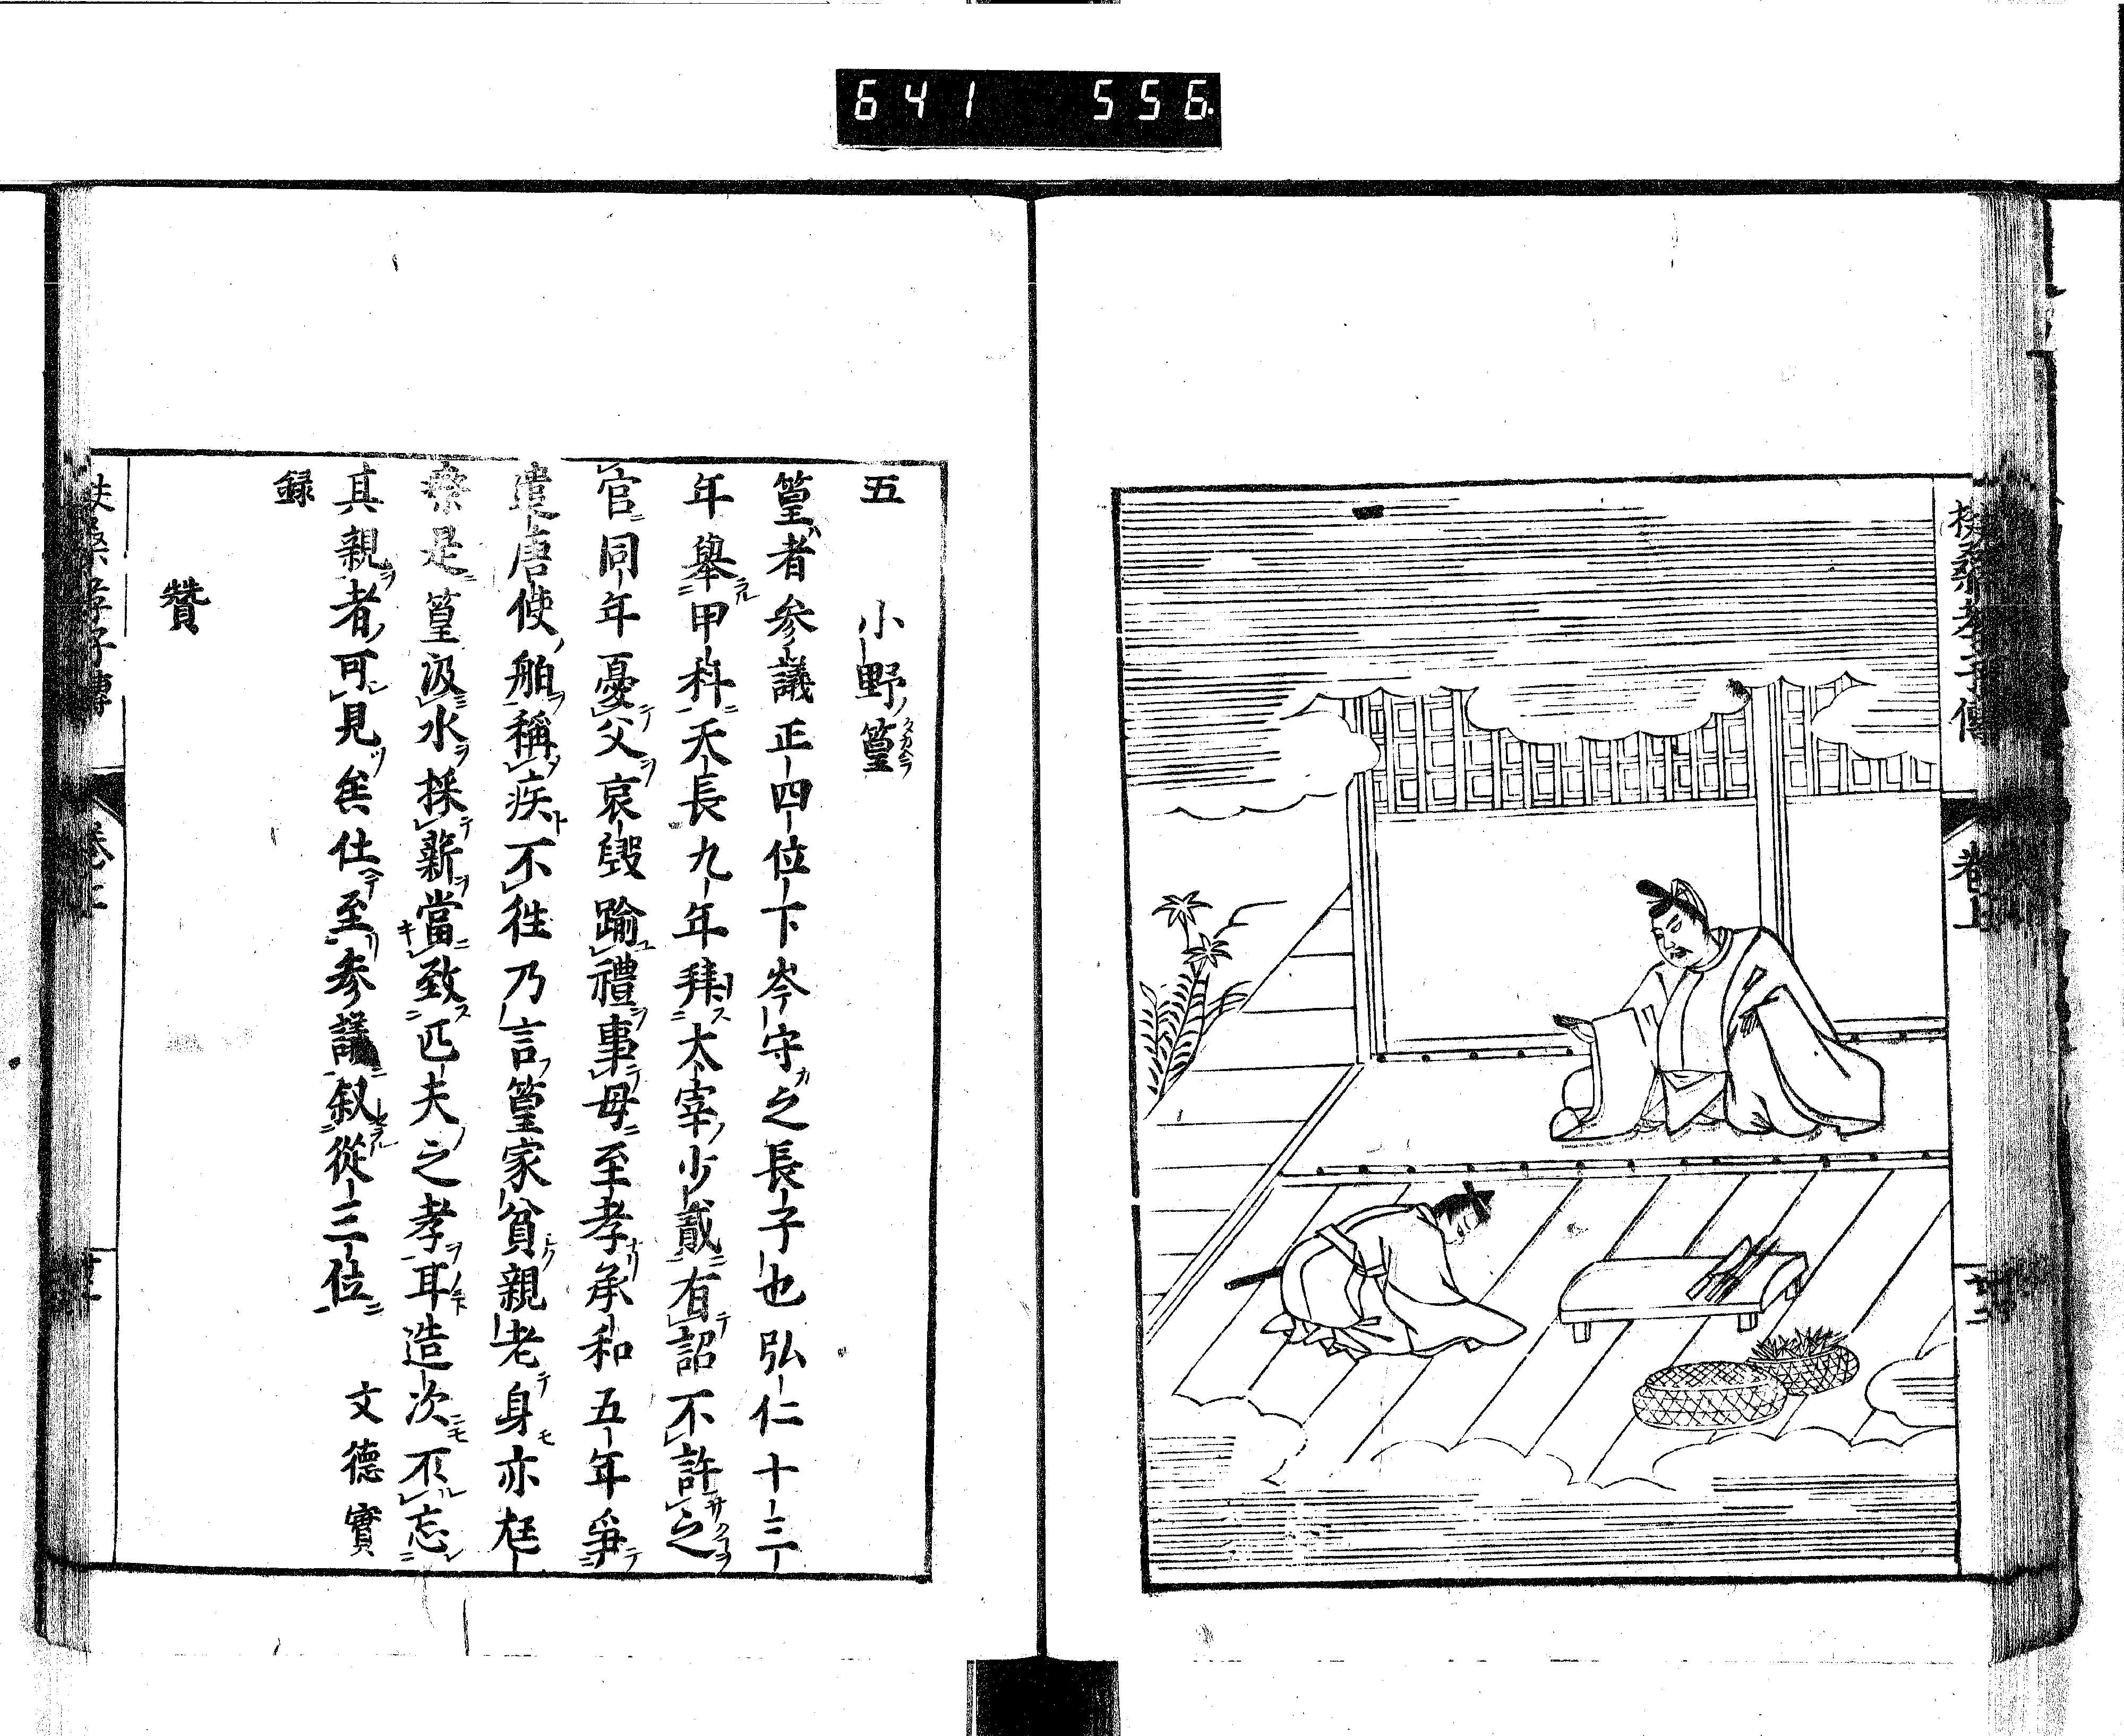 641 556
扶桑孝子傳 卷上
五 小野篁
篁者参議正四位下岑守之長子也弘仁十三
年舉甲科天長九年拜太宰少貳有詔不許之
官同年憂父哀毀踰禮事母至孝承和五年爭
遣唐使舶稱疾不往乃言篁家貧親老身亦尪
瘵是篁汲水採薪當致匹夫之孝耳造次不忘
其親者可見矣仕至参議叙從三位 文德實
録
賛
扶桑孝子傳 卷上